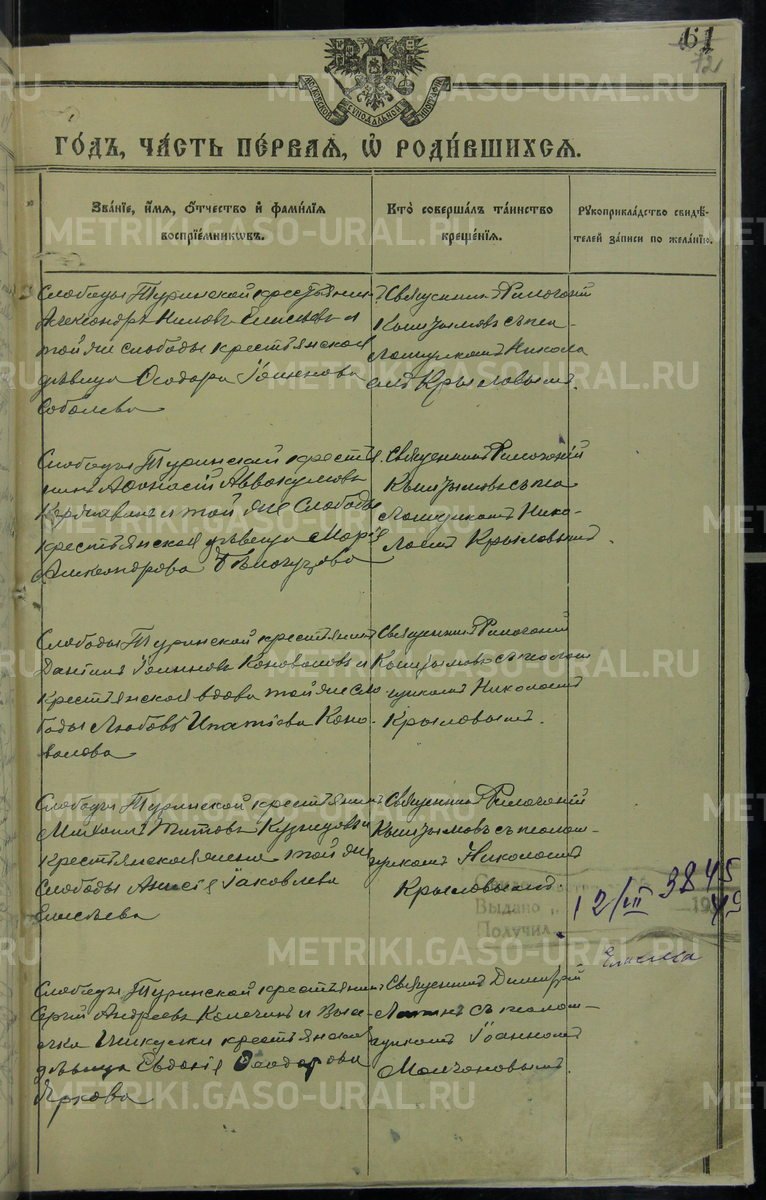 61
72
МОСКОВСКОЙ СИНОДАЛЬНОЙ ТИПОГРАФІИ
ГОДЪ, ЧАСТЬ ПЕРВАЯ, Ѡ РОДИВШИХСЯ.
Званіе, имя, отчество и фамилія
воспріемниковъ.
Кто совершалъ таинство
крещенія.
Рукоприкладство свидѣ-
телей записи по желанію.
Слободы Туринской крестьянинъ
Александръ Ниловъ Елисѣевъ и
той же слободы крестьянская
дѣвица Ѳеодора Іоаннова
Соболева
Священникъ Филогоній
съ пса-
ломщикомъ Никола
емъ Крыловымъ.
Слободы Туринской крестья
нинъ Аѳонасій Аввакумовъ
и той же Слободы
крестьянская дѣвица Марія
Александрова Бѣлоглузова
Священникъ Филогоній
съ пса
ломщикомъ Нико-
лаемъ Крыловымъ.
Слободы Туринской крестьянинъ
Даніилъ Іоанновъ Коноваловъ и
крестьянская вдова той же сло
боды Любовь Ипатіева Коно-
валова
Священникъ Филогоній
съ псалом
щикомъ Николаемъ
Крыловымъ.
Слободы Туринской крестьянинъ
Михаилъ Титовъ Кузнецовъ и
крестьянская жена той же
Слободы Анисія Іаковлева
Елисѣева
Священникъ Филогоній
съ псалом-
щикомъ Николаемъ
Крыловымъ.
Выдано
Получил
12/III 3845
Слободы Туринской крестьянинъ
Сергій Андреевъ Колегинъ и
крестьянская
дѣвица Евдокія Ѳеодорова
Яркова
Священникъ Димитрій
съ псалом-
щикомъ Іоанномъ
Молчановымъ.
METRIKI.GASO-URAL.RU